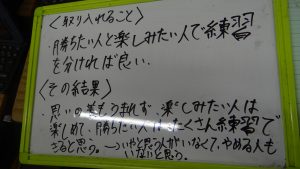 〈取り入れること〉
・勝ちたい人と楽しみたい人で練習
を分ければ良い.
〈その結果〉
・思いの差もうまれず、楽しみたい人は
楽しめて、勝ちたい人はたくさん練習で
きると思う。→いやと思う人がいなくて、やめる人も
いないと思う。